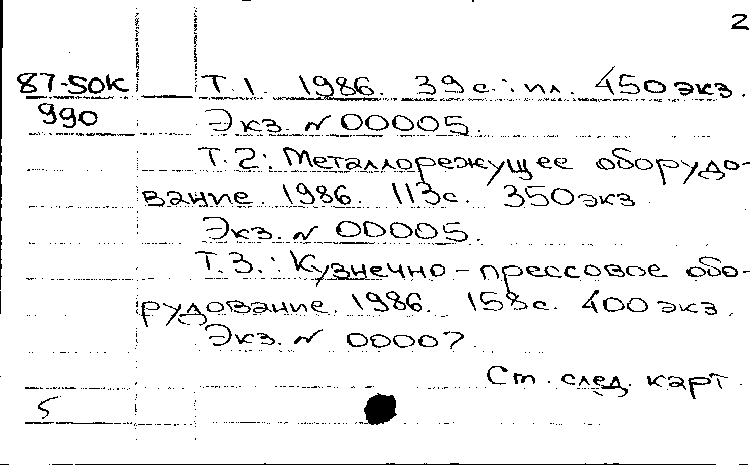 2
87-50К Т.1. 1986. 39с.: ил. 450экз.
990 Экз. № 00005.
Т.2: Металлорежущее оборудо-
вание. 1986. 113с. 350экз
Экз. № 00005.
Т.3.: Кузнечно-прессовое обо-
рудование. 1986. 158с. 400экз.
Экз. № 00007
См. след. карт.
5